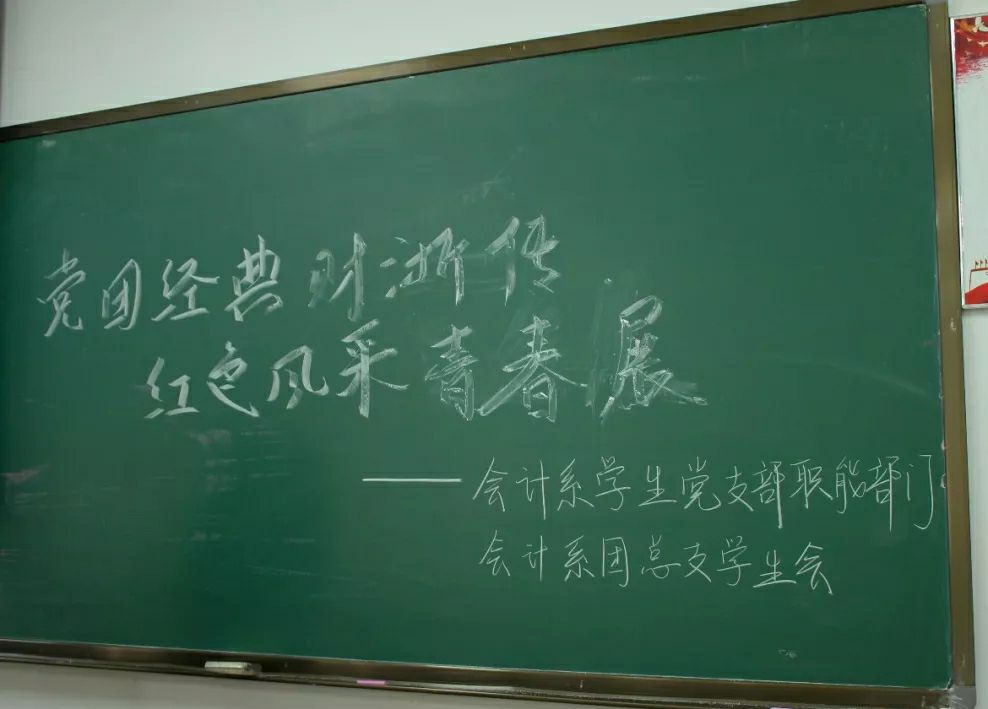 党团经典财浙传
红色风采青春展
——会计系学生党支部职能部门
会计系团总支学生会